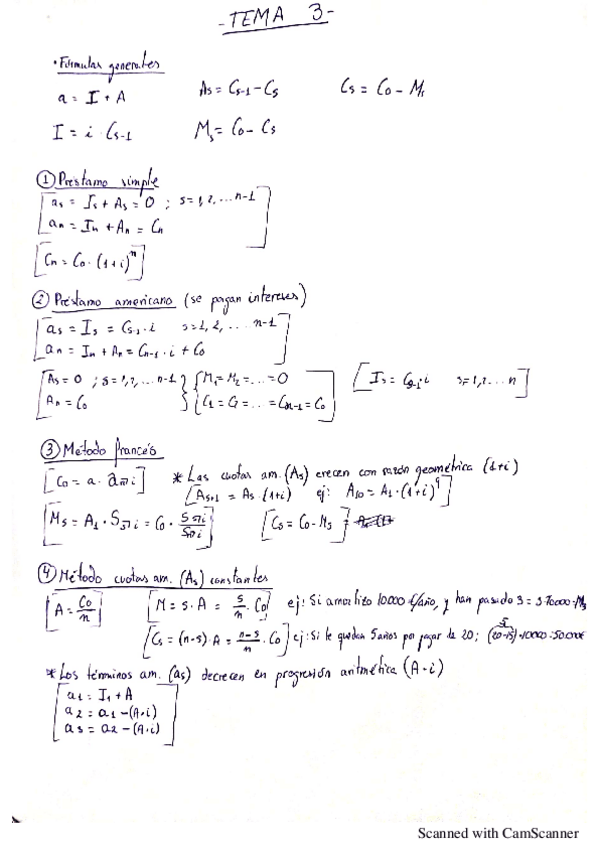 - TEMA 3 -
· Fórmulas generales
a = I + A    As = Cs-1 - Cs    Cs = Co - Ms
I = i · Cs-1    Ms = Co - Cs
① Préstamo simple
as = Is + As = 0 ; s = 1, 2, ... n-1
an = In + An = Cn
Cn = Co · (1+i)^n
② Préstamo americano (se pagan intereses)
as = Is = Cs-1 · i    s = 1, 2, ... n-1
an = In + An = Cn-1 · i + Co
As = 0 ; s = 1, 2, ... n-1    M1 = M2 = ... = 0    Is = Cs-1 · i    s = 1, 2 ... n
An = Co    C1 = C2 = ... = Cn-1 = Co
③ Método francés
Co = a · a n i    * Las cuotas am. (As) crecen con razón geométrica (1+i)
As+1 = As · (1+i)    ej: A10 = A1 · (1+i)^9
Ms = A1 · S s i = Co · S s i / S n i    Cs = Co - Ms
④ Método cuotas am. (As) constantes
A = Co/n    M = s · A = s/n · Co    ej: Si amortizo 10000 €/año, y han pasado 3 = 3·10000 = M3
Cs = (n-s) · A = n-s/n · Co    ej: Si le quedan 5 años por pagar de 20; (20-15)·10000 = 50.000€
* Los términos am. (as) decrecen en progresión aritmética (A·i)
a1 = I1 + A
a2 = a1 - (A·i)
a3 = a2 - (A·i)
Scanned with CamScanner